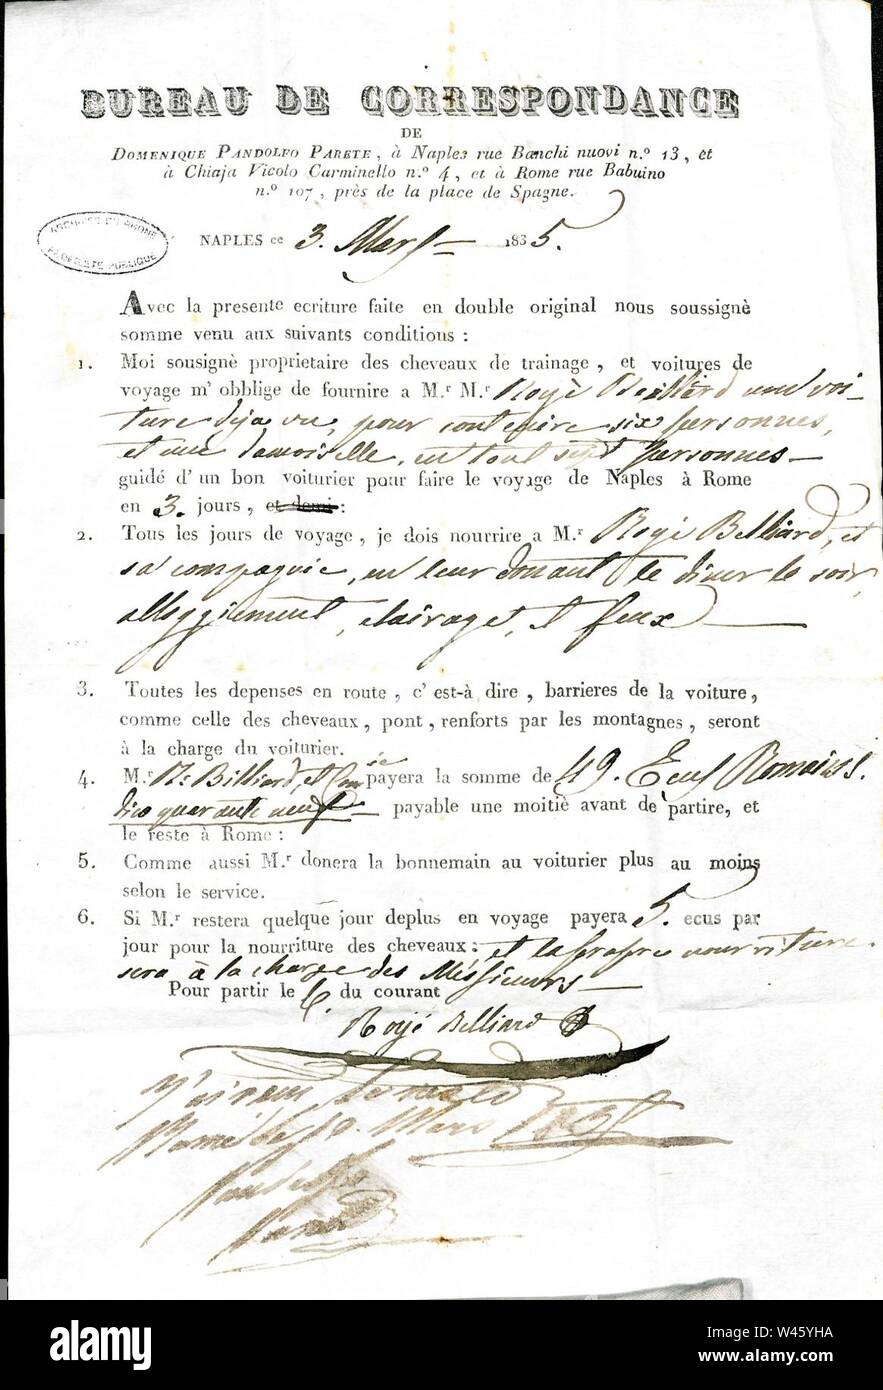 BUREAU DE CORRESPONDANCE
DE
DOMENIQUE PANDOLFO PARETE, à Naples rue Banchi nuovi n.º 13, et
à Chiaja Vicolo Carminello n.º 4, et à Rome rue Babuino
n.º 107, près de la place de Spagne.
ARCHIVES DU RHONE
PUBLIQUE
NAPLES ce 3. Mars 1835.
Avec la presente ecriture faite en double original nous soussignè
somme venu aux suivants conditions :
1. Moi sousignè proprietaire des cheveaux de trainage, et voitures de
voyage m' obblige de fournire a M.r M.r Rogè Belliard une voi-
ture deja vu, pour contenire six personnes,
et une damoiselle, en tout sept personnes
guidé d' un bon voiturier pour faire le voyage de Naples à Rome
en 3. jours, et demi :
2. Tous les jours de voyage, je dois nourrire a M.r Rogé Belliard, et
sa compagnie, en leur donant le diner le soir,
alloggiement, clairage, et feux
3. Toutes les depenses en route, c' est-à dire, barrieres de la voiture,
comme celle des cheveaux, pont, renforts par les montagnes, seront
à la charge du voiturier.
4. M.r R. Billiard, et payera la somme de 49. Ecus Romains.
dico quarante neuf payable une moitiè avant de partire, et
le reste à Rome :
5. Comme aussi M.r donera la bonnemain au voiturier plus au moins
selon le service.
6. Si M.r restera quelque jour deplus en voyage payera 5. ecus par
jour pour la nourriture des cheveaux : et la propre nourriture
sera à la charge des Messieurs
Pour partir le 6. du courant
Rogé Belliard
Rome 10. Mars 1835
alamy
Image ID: W45YHA
www.alamy.com